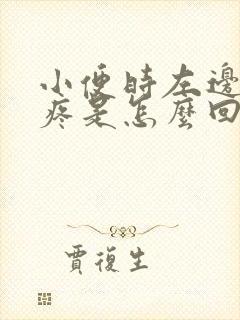 小便時左邊
疼是怎麼回
賈復生